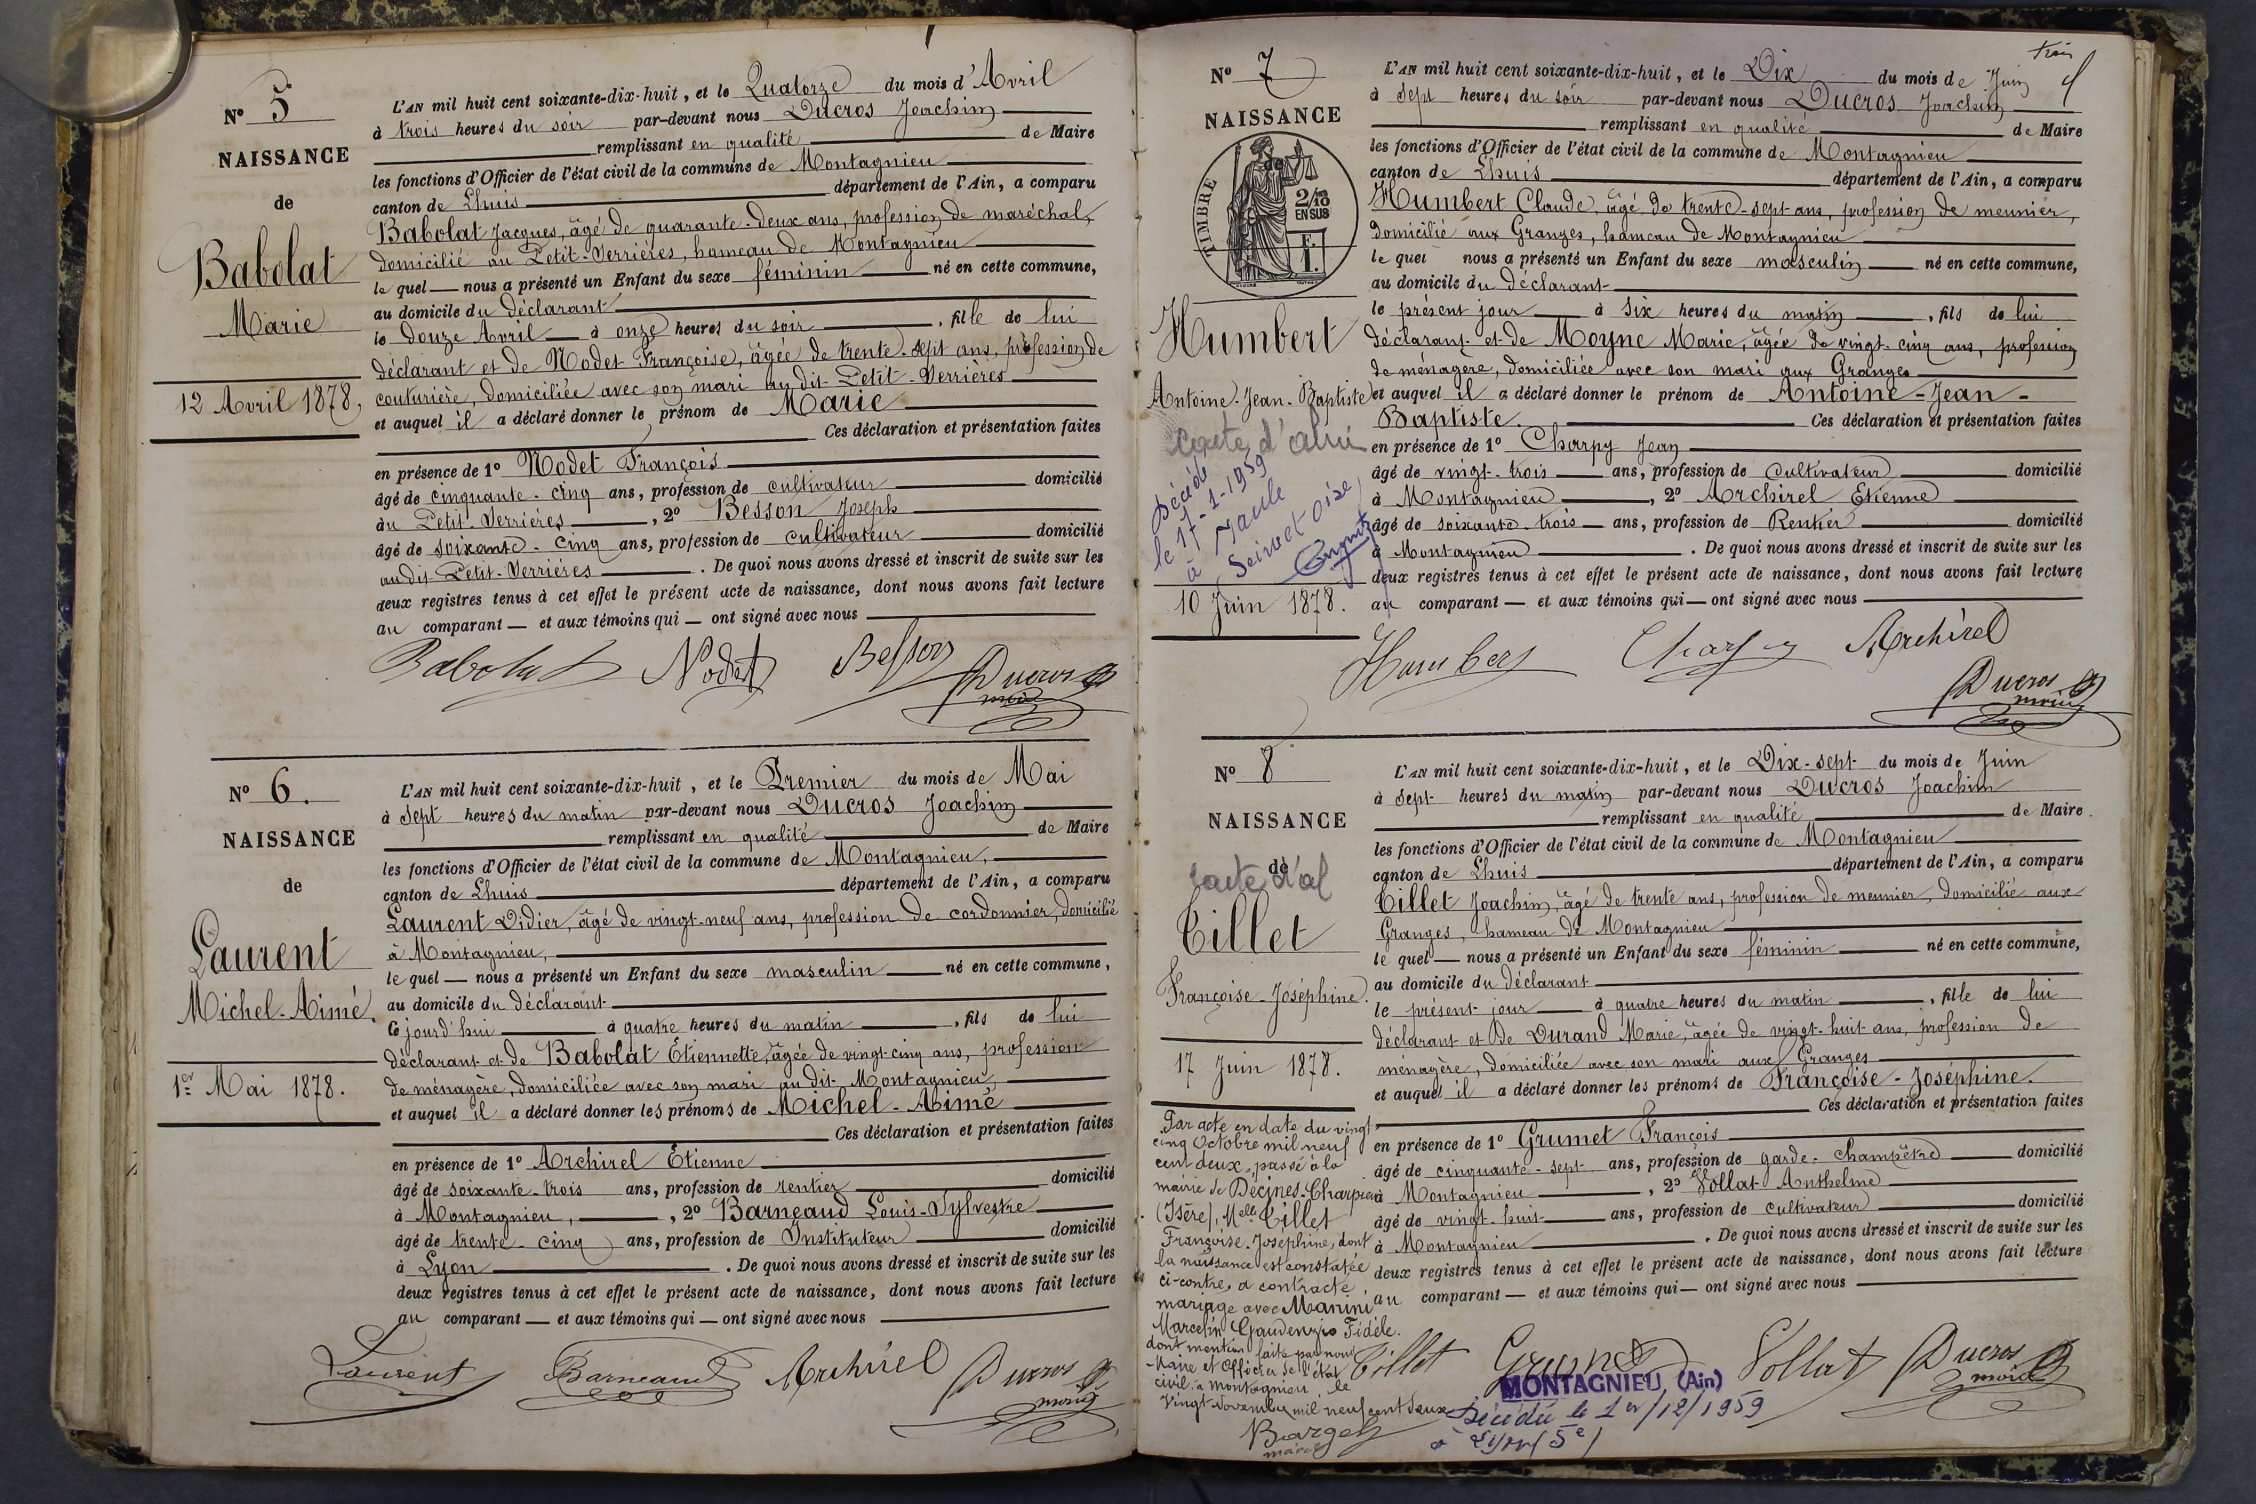 N° 5
NAISSANCE
de
Babolat
Marie
12 Avril 1878,
L'AN mil huit cent soixante-dix-huit, et le Quatorze du mois d'Avril
à trois heures du soir par-devant nous Ducros Joachim
remplissant en qualité de Maire
les fonctions d'Officier de l'état civil de la commune de Montagnieu
canton de Lhuis département de l'Ain, a comparu
Babolat Jacques, âgé de quarante-deux ans, profession de maréchal,
domicilié au Petit-Verrières, hameau de Montagnieu
le quel nous a présenté un Enfant du sexe féminin né en cette commune,
au domicile du déclarant
le douze Avril à onze heures du soir, fille de lui
déclarant et de Nodet Françoise, âgée de trente-sept ans, profession de
couturière, domiciliée avec son mari au dit Petit-Verrières
et auquel il a déclaré donner le prénom de Marie
Ces déclaration et présentation faites
en présence de 1° Nodet François
âgé de cinquante-cinq ans, profession de cultivateur domicilié
au Petit-Verrières, 2° Besson Joseph
âgé de soixante-cinq ans, profession de cultivateur domicilié
au dit Petit-Verrières. De quoi nous avons dressé et inscrit de suite sur les
deux registres tenus à cet effet le présent acte de naissance, dont nous avons fait lecture
au comparant et aux témoins qui ont signé avec nous
Babolat Nodet Besson Ducros
maire
N° 6.
NAISSANCE
de
Laurent
Michel-Aimé.
1er Mai 1878.
L'AN mil huit cent soixante-dix-huit, et le Premier du mois de Mai
à sept heures du matin par-devant nous Ducros Joachim
remplissant en qualité de Maire
les fonctions d'Officier de l'état civil de la commune de Montagnieu,
canton de Lhuis département de l'Ain, a comparu
Laurent Didier, âgé de vingt-neuf ans, profession de cordonnier, domicilié
à Montagnieu,
le quel nous a présenté un Enfant du sexe masculin né en cette commune,
au domicile du déclarant
Ce jourd'hui à quatre heures du matin, fils de lui
déclarant et de Babolat Étiennette, âgée de vingt-cinq ans, profession
de ménagère, domiciliée avec son mari au dit Montagnieu,
et auquel il a déclaré donner les prénoms de Michel-Aimé
Ces déclaration et présentation faites
en présence de 1° Archirel Étienne
âgé de soixante-trois ans, profession de rentier domicilié
à Montagnieu, 2° Barneaud Louis-Sylvestre
âgé de trente-cinq ans, profession de Instituteur domicilié
à Lyon. De quoi nous avons dressé et inscrit de suite sur les
deux registres tenus à cet effet le présent acte de naissance, dont nous avons fait lecture
au comparant et aux témoins qui ont signé avec nous
Laurent Barneaud Archirel Ducros
maire
trois
N° 7
NAISSANCE
de
TIMBRE
2/10
EN SUS
Humbert
Antoine-Jean-Baptiste
carte d'alim
Décédé
le 17-1-1959
à Maule
Seine et Oise
10 Juin 1878.
L'AN mil huit cent soixante-dix-huit, et le Dix du mois de Juin
à sept heures du soir par-devant nous Ducros Joachim
remplissant en qualité de Maire
les fonctions d'Officier de l'état civil de la commune de Montagnieu
canton de Lhuis département de l'Ain, a comparu
Humbert Claude, âgé de trente-sept ans, profession de meunier,
domicilié aux Granges, hameau de Montagnieu
le quel nous a présenté un Enfant du sexe masculin né en cette commune,
au domicile du déclarant
le présent jour à six heures du matin, fils de lui
déclarant et de Moyne Marie, âgée de vingt-cinq ans, profession
de ménagère, domiciliée avec son mari aux Granges
et auquel il a déclaré donner le prénom de Antoine-Jean-
Baptiste. Ces déclaration et présentation faites
en présence de 1° Charpy Jean
âgé de vingt-trois ans, profession de cultivateur domicilié
à Montagnieu, 2° Archirel Etienne
âgé de soixante-trois ans, profession de Rentier domicilié
à Montagnieu. De quoi nous avons dressé et inscrit de suite sur les
deux registres tenus à cet effet le présent acte de naissance, dont nous avons fait lecture
au comparant et aux témoins qui ont signé avec nous
Humbert Charpy Archirel
Ducros
maire
N° 8
NAISSANCE
de
carte d'al
Tillet
Françoise-Joséphine.
17 Juin 1878.
Par acte en date du vingt
cinq Octobre mil neuf
cent deux, passé à la
mairie de Décines-Charpieu
(Isère), Melle Tillet
Françoise-Joséphine, dont
la naissance est constatée
ci-contre, a contracté
mariage avec Manini
Marcelin Gaudenzio Fidèle.
dont mention faite par nous
Maire et Officier de l'état
civil à Montagnieu, le
vingt Novembre mil neuf cent deux
maire
L'AN mil huit cent soixante-dix-huit, et le Dix-sept du mois de Juin
à sept heures du matin par-devant nous Ducros Joachim
remplissant en qualité de Maire.
les fonctions d'Officier de l'état civil de la commune de Montagnieu
canton de Lhuis département de l'Ain, a comparu
Tillet Joachim, âgé de trente ans, profession de meunier, domicilié aux
Granges, hameau de Montagnieu
le quel nous a présenté un Enfant du sexe féminin né en cette commune,
au domicile du déclarant
le présent jour à quatre heures du matin, fille de lui
déclarant et de Durand Marie, âgée de vingt-huit ans, profession de
ménagère, domiciliée avec son mari aux Granges
et auquel il a déclaré donner les prénoms de Françoise-Joséphine.
Ces déclaration et présentation faites
en présence de 1° Grumet François
âgé de cinquante-sept ans, profession de garde-champêtre domicilié
à Montagnieu, 2° Vollat Anthelme
âgé de vingt-huit ans, profession de cultivateur domicilié
à Montagnieu. De quoi nous avons dressé et inscrit de suite sur les
deux registres tenus à cet effet le présent acte de naissance, dont nous avons fait lecture
au comparant et aux témoins qui ont signé avec nous
Tillet Grumet Vollat Ducros
maire
MONTAGNIEU (Ain)
Décédée le 1er/12/1959
à Lyon (5e)